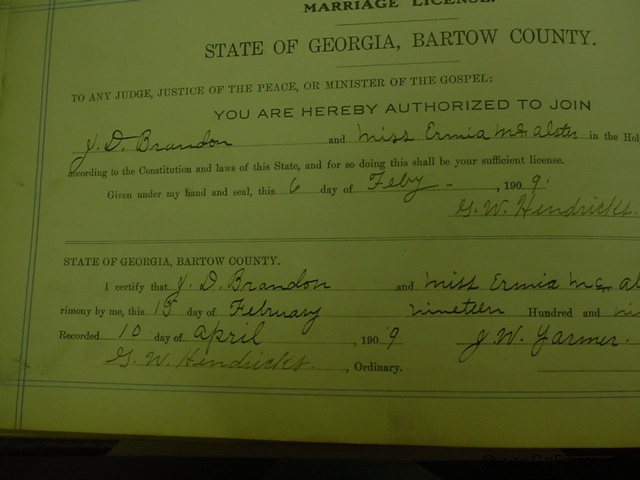 MARRIAGE LICENSE.
STATE OF GEORGIA, BARTOW COUNTY.
TO ANY JUDGE, JUSTICE OF THE PEACE, OR MINISTER OF THE GOSPEL:
YOU ARE HEREBY AUTHORIZED TO JOIN
J. D. Brandon and Miss Ermia McAlster in the Hol
according to the Constitution and laws of this State, and for so doing this shall be your sufficient license.
Given under my hand and seal, this 6 day of Feby - , 190 9.
G. W. Hendricks.
STATE OF GEORGIA, BARTOW COUNTY.
I certify that J. D. Brandon and Miss Ermia Mc Al
rimony by me, this day of February nineteen Hundred and
Recorded 10 day of April , 190 9 J. W. Yarmer.
G. W. Hendricks. , Ordinary.